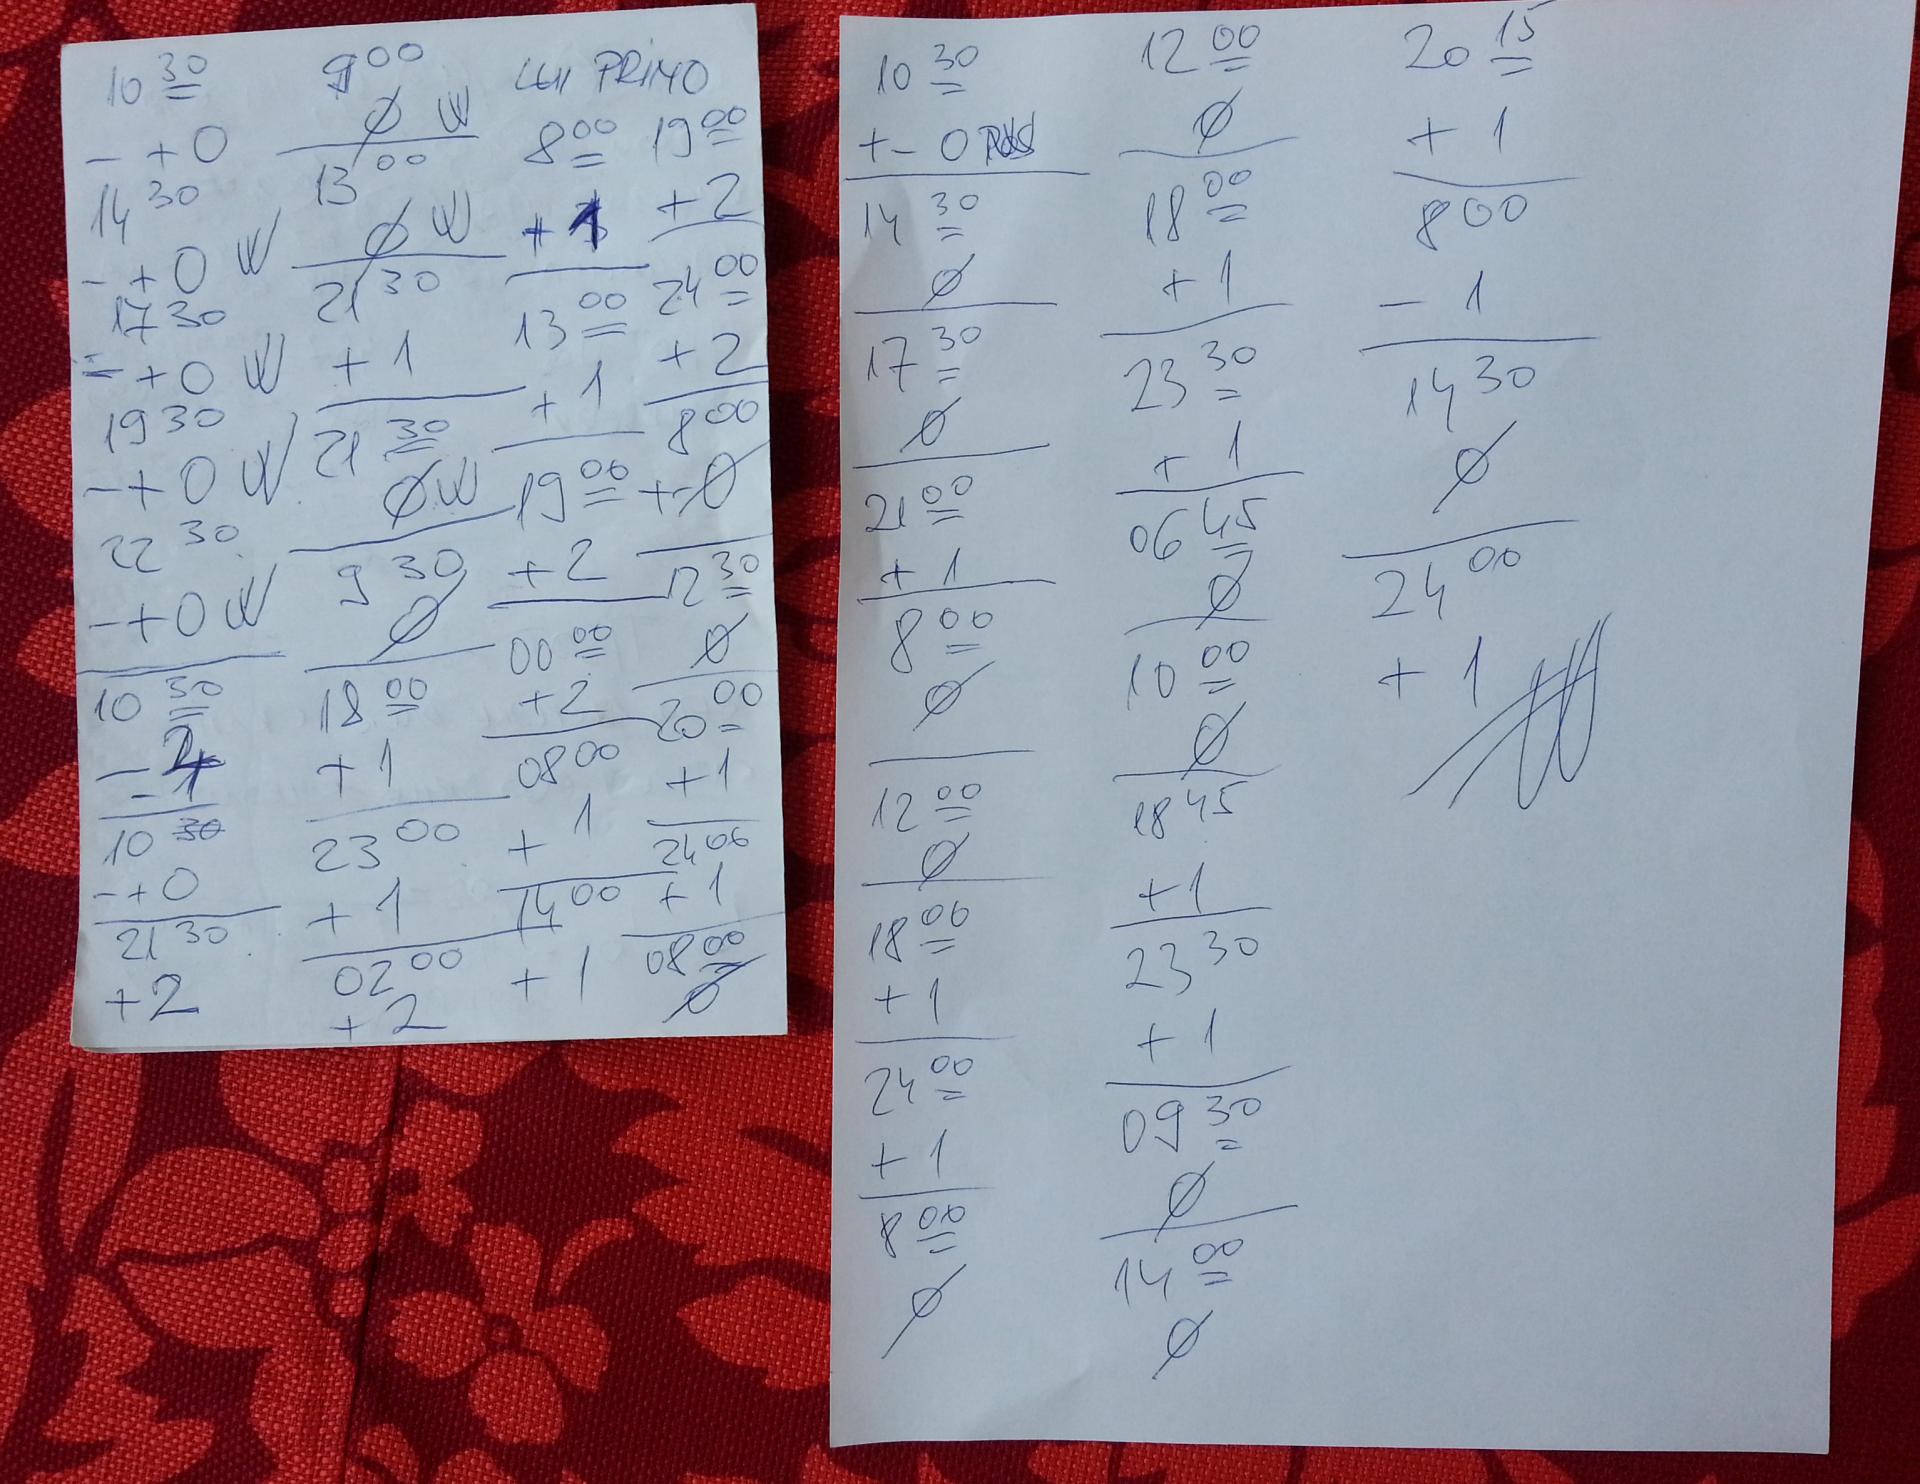 10 30
- + 0
14 30
- + 0 W
17 30
= + 0 W
19 30
- + 0 W
22 30
- + 0 W
10 30
- 2
- 1
10 30
- + 0
21 30
+ 2
9 00
Ø W
13 00
Ø W
21 30
+ 1
21 30
Ø W
9 30
Ø
18 00
+ 1
23 00
+ 1
02 00
+ 2
LUI PRIMO
8 00
+ 1
13 00
+ 1
19 00
+ 2
00 00
+ 2
08 00
+ 1
14 00
+ 1
19 00
+ 2
24 00
+ 2
8 00
+ - 0
12 30
Ø
20 00
+ 1
24 00
+ 1
08 00
Ø
10 30
+ - 0
14 30
Ø
17 30
Ø
21 00
+ 1
8 00
Ø
12 00
Ø
18 00
+ 1
24 00
+ 1
8 00
Ø
12 00
Ø
18 00
+ 1
23 30
+ 1
06 45
Ø
10 00
Ø
18 45
+ 1
23 30
+ 1
09 30
Ø
14 00
Ø
20 15
+ 1
8 00
- 1
14 30
Ø
24 00
+ 1